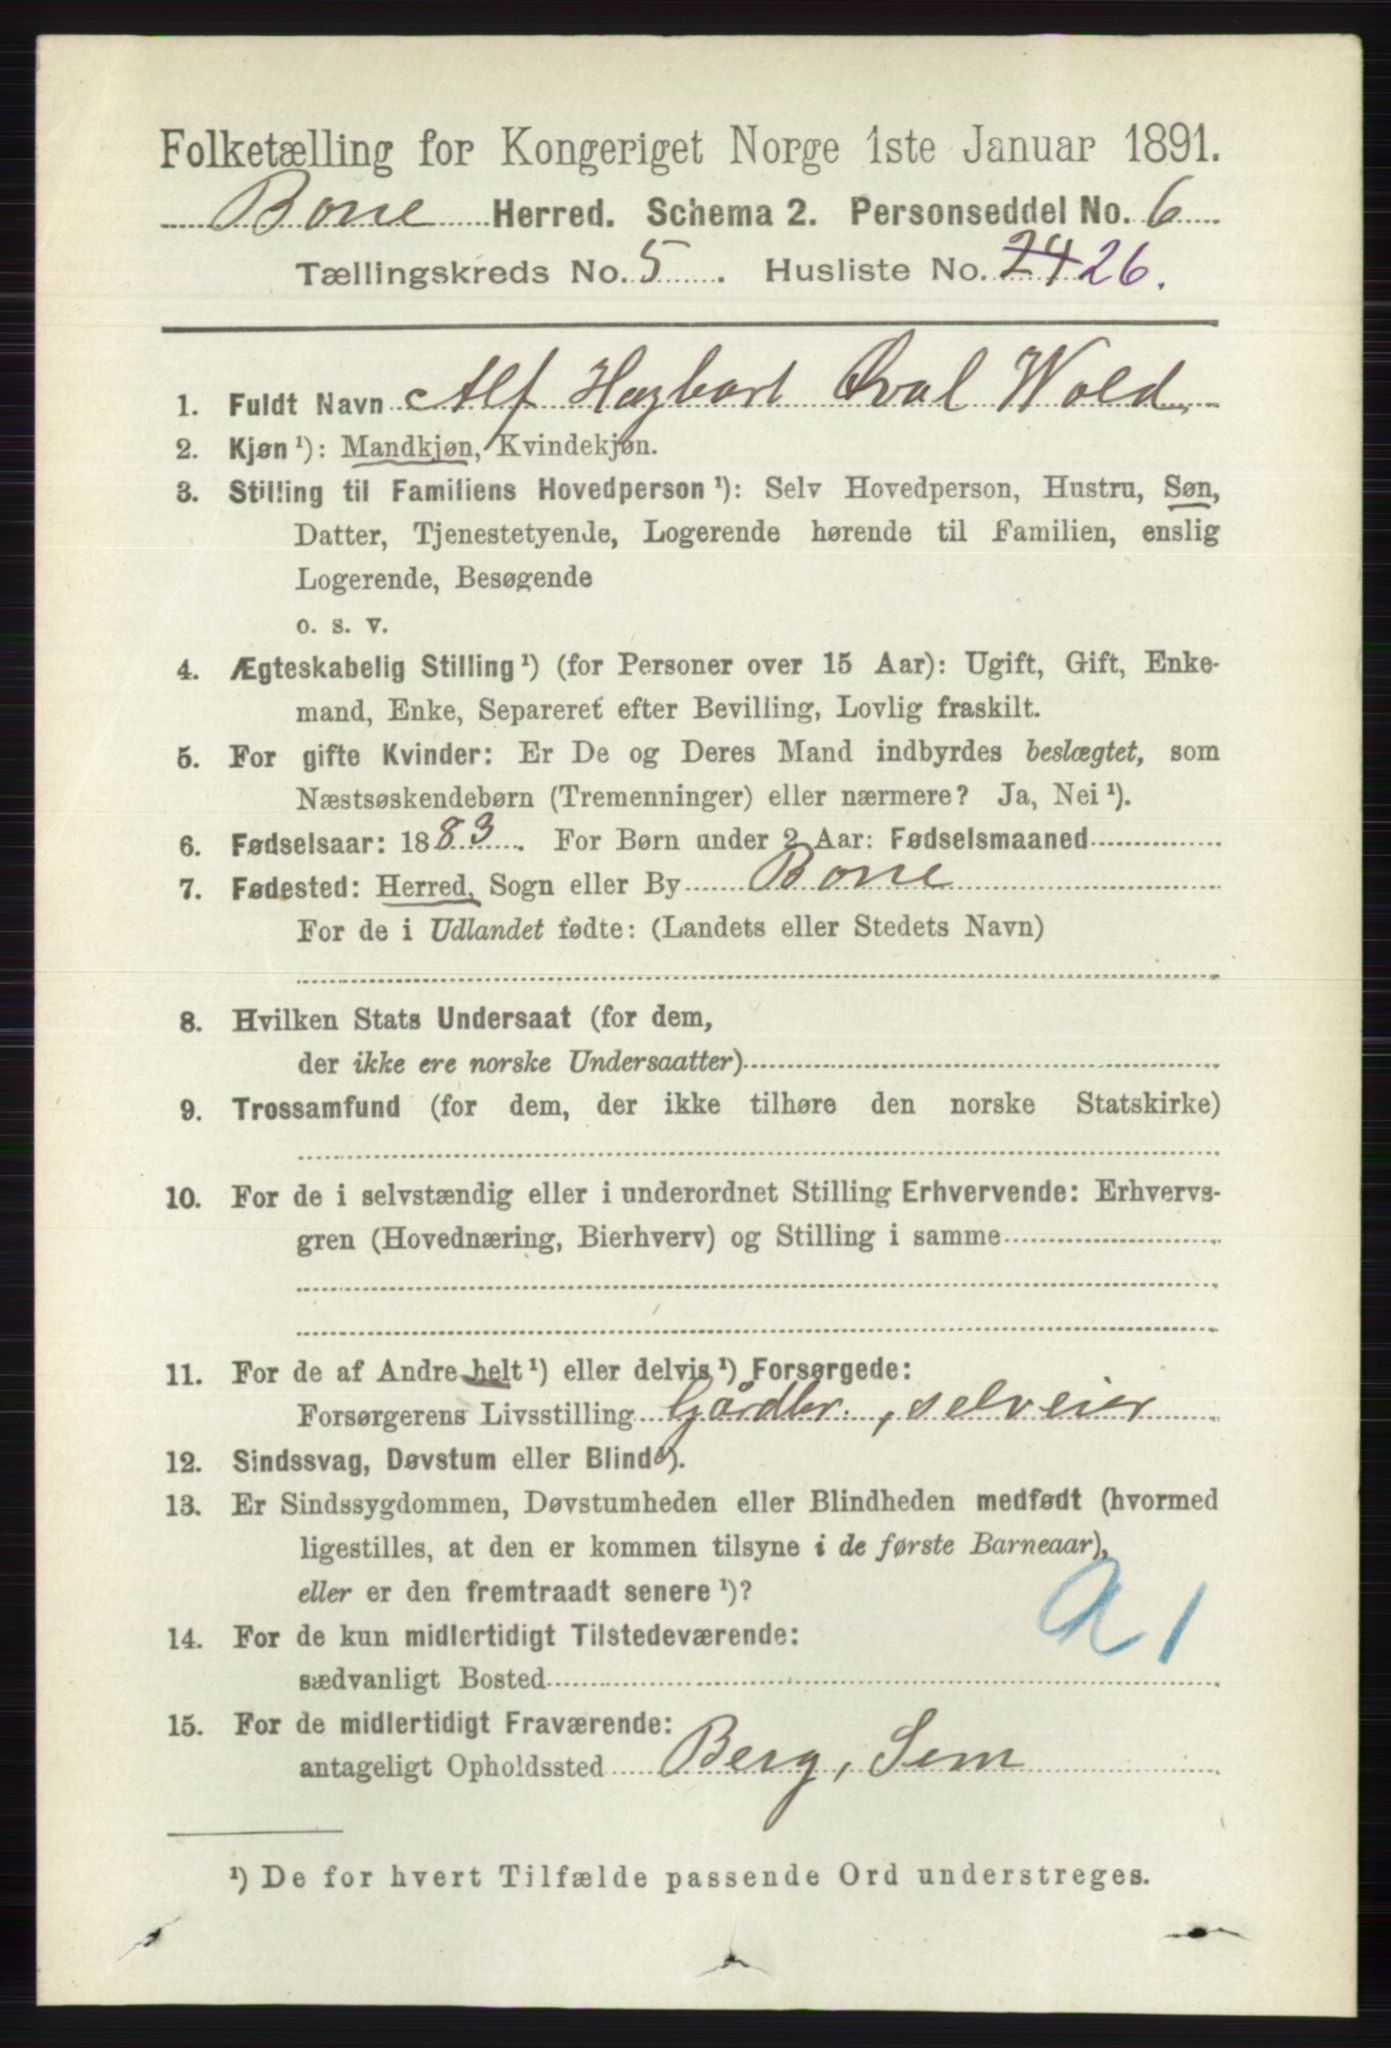 Folketælling for Kongeriget Norge 1ste Januar 1891.
Borre Herred. Schema 2. Personseddel No. 6
Tællingskreds No. 5. Husliste No. 24 26.
1. Fuldt Navn Alf Hagbart Oval Wold
2. Kjøn ¹): Mandkjøn, Kvindekjøn.
3. Stilling til Familiens Hovedperson ¹): Selv Hovedperson, Hustru, Søn,
Datter, Tjenestetyende, Logerende hørende til Familien, enslig
Logerende, Besøgende
o. s. v.
4. Ægteskabelig Stilling ¹) (for Personer over 15 Aar): Ugift, Gift, Enke-
mand, Enke, Separeret efter Bevilling, Lovlig fraskilt.
5. For gifte Kvinder: Er De og Deres Mand indbyrdes beslægtet, som
Næstsøskendebørn (Tremenninger) eller nærmere? Ja, Nei ¹).
6. Fødselsaar: 1883. For Børn under 2 Aar: Fødselsmaaned
7. Fødested: Herred, Sogn eller By Borre
For de i Udlandet fødte: (Landets eller Stedets Navn)
8. Hvilken Stats Undersaat (for dem,
der ikke ere norske Undersaatter)
9. Trossamfund (for dem, der ikke tilhøre den norske Statskirke)
10. For de i selvstændig eller i underordnet Stilling Erhvervende: Erhvervs-
gren (Hovednæring, Bierhverv) og Stilling i samme
11. For de af Andre helt ¹) eller delvis ¹) Forsørgede:
Forsørgerens Livsstilling Gårdbr., selveier
12. Sindssvag, Døvstum eller Blind ¹).
13. Er Sindssygdommen, Døvstumheden eller Blindheden medfødt (hvormed
ligestilles, at den er kommen tilsyne i de første Barneaar),
eller er den fremtraadt senere ¹)?
a 1
14. For de kun midlertidigt Tilstedeværende:
sædvanligt Bosted
15. For de midlertidigt Fraværende:
antageligt Opholdssted Berg, Sem
¹) De for hvert Tilfælde passende Ord understreges.